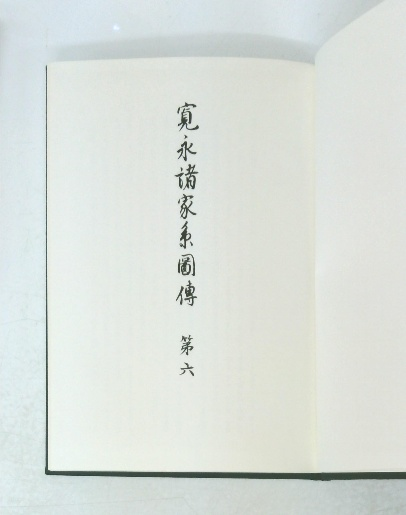 寛永諸家系圖傳　第六